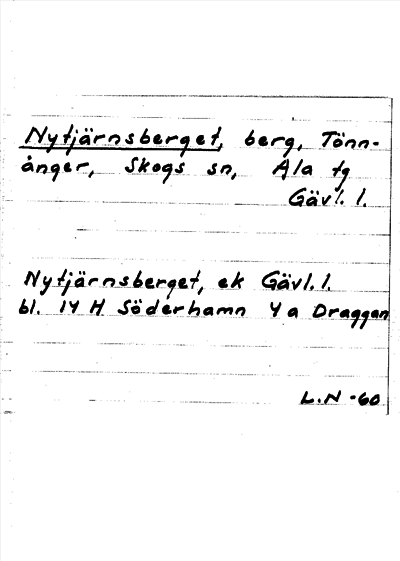 Nytjärnsberget, berg, Tönn-
ånger, Skogs sn, Ala tg
Gävl. l.
Nytjärnsberget, ek Gävl. l.
bl. 14 H Söderhamn 4 a Draggen
L.N -60